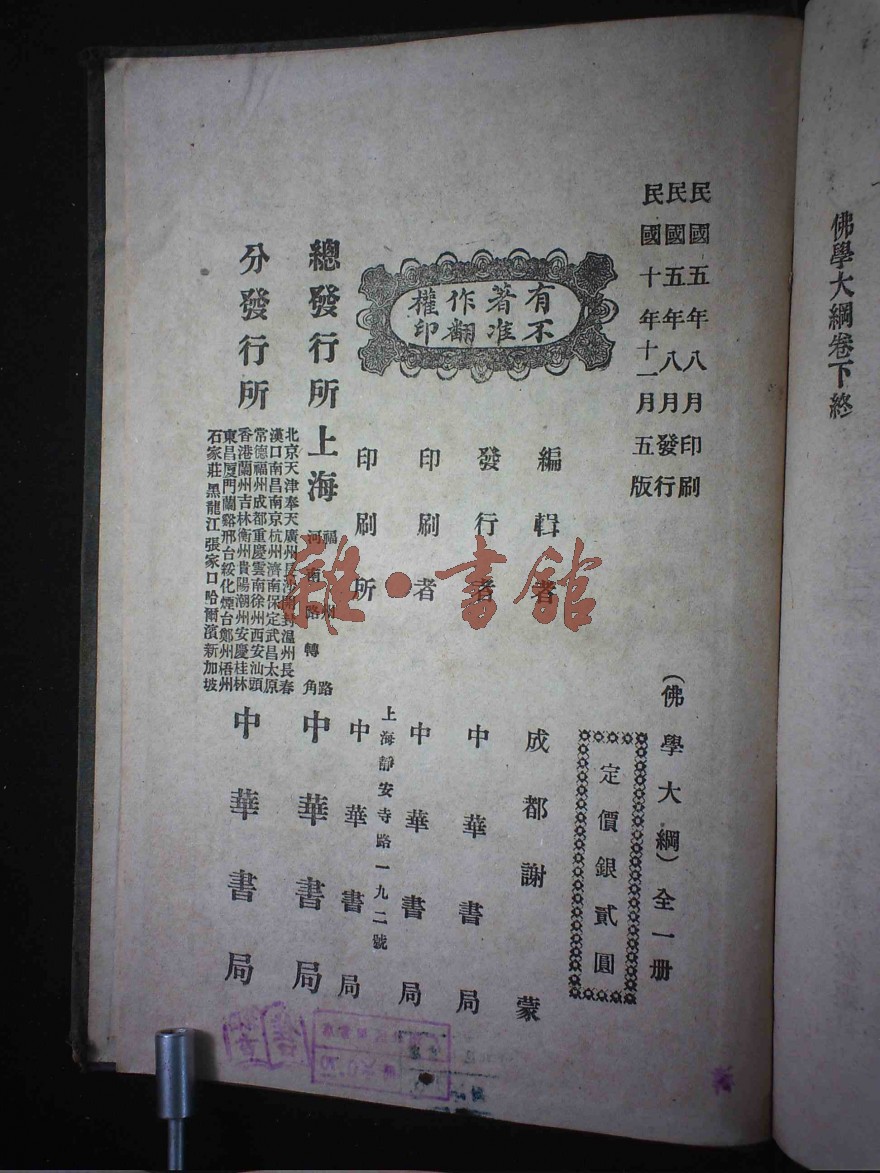 佛學大綱卷下終
民國五年八月印刷
民國五年八月發行
民國十年十一月五版
(佛學大綱)全一册
定價銀貳圓
有著作權
不准翻印
編輯者 成都謝蒙
發行者 中華書局
印刷者 中華書局
上海靜安寺路一九二號
印刷所 中華書局
總發行所 上海 福州路
河南路轉角 中華書局
分發行所
北京天津奉天廣州長沙開封溫州長春
漢口南昌南京杭州濟南保定武昌太原
常德福州成都重慶雲南徐州西安汕頭
香港蘭州吉林衡州貴陽潮州安慶桂林
東昌厦門蘭谿邢台綏化煙台鄭州梧州
石家莊黑龍江張家口哈爾濱新加坡
中華書局
雜·書館